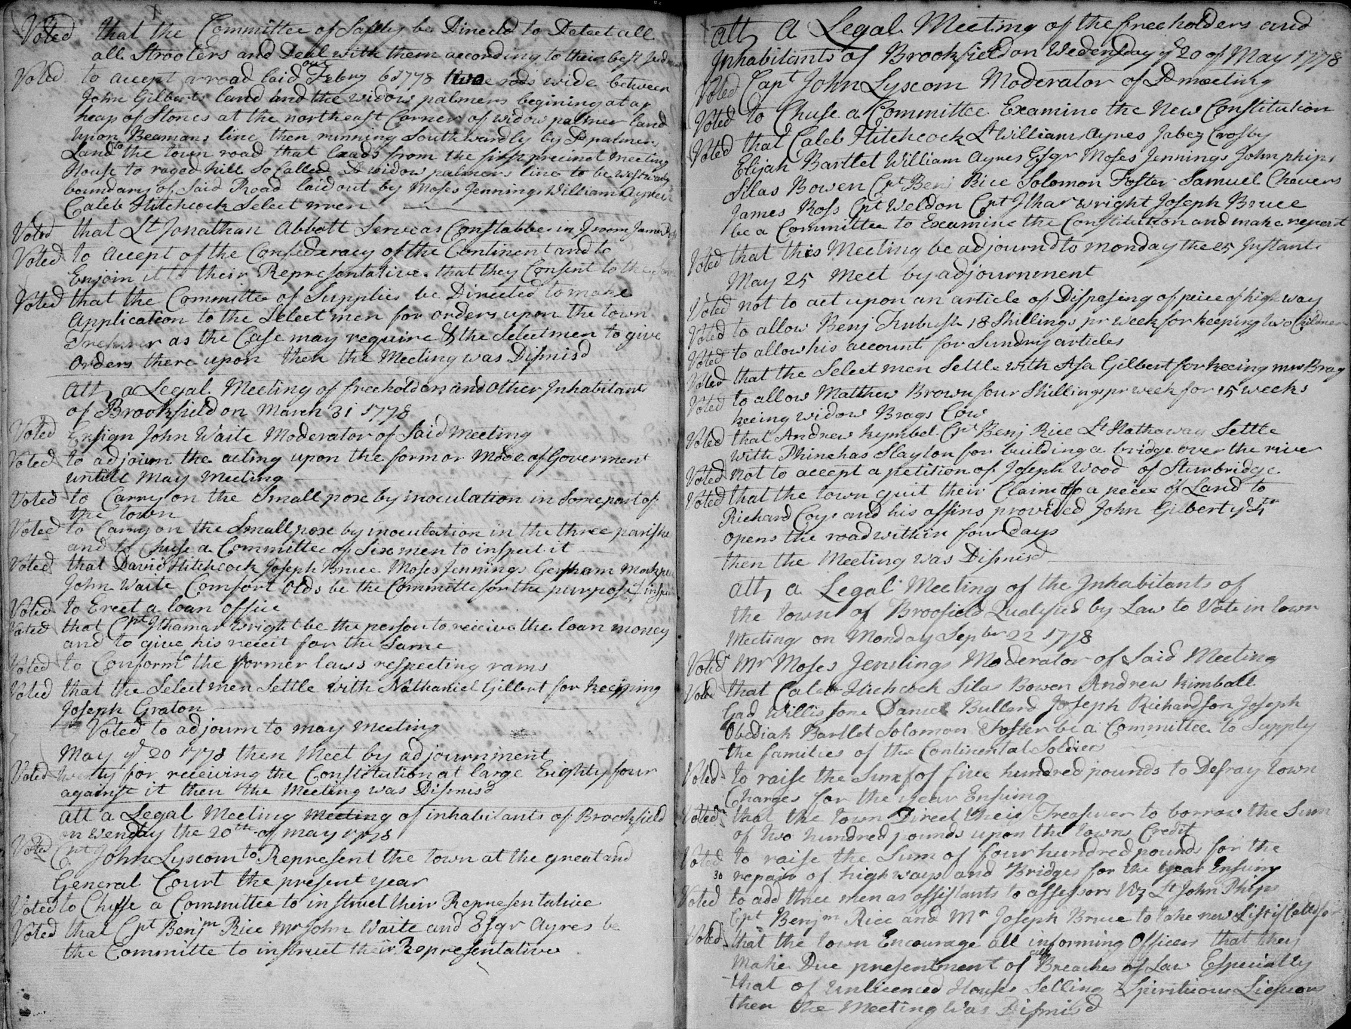 Voted that the Committee of Safety be Directed to Detect all
all Stroolers and Deal with them according to their best
Voted to accept a road laid out Febry 6 1778 two rods wide between
John Gilberts land and the widow palmers begining at a
heap of Stones at the northeast Corner of widow palmer land
upon Beamans line then running Southwardly by Sd palmer
Land to the town road that leads from the first precinct meeting
House to raged hill So Called Sd widow palmers line to be
boundary of Said Road laid out by Moses Jennings William Ayres
Caleb Hitchcock Select men
Voted that Lt Jonathan Abbott Serve as Constabbe in room
Voted to accept of the Confederacy of the Continent and to
Enjoin it to their Representative that they Consent to
Voted that the Committee of Supplies be Directed to make
Application to the Select men for orders upon the town
Treasurer as the Case may require & the Selectmen to give
orders there upon then the Meeting was Dismisd
att, a Legal Meeting of freeholders and other Inhabitant
of Brookfield on March 31 1778
Voted Ensign John Waite Moderator of Said Meeting
Voted to adjoirn the acting upon the form or Mode of Goverment
untill May Meeting
Voted to Carry on the Small pox by inoculation in Some part of
the town
Voted to Carry on the Small pox by inoculation in the three parishes
and to Chuse a Committee of Six men to inspect it
Voted that David Hitchcock Joseph Bruce Moses Jennings Gersham
John Waite Comfort Olds be the Committe for the purpose of
Voted to Erect a loan office
Voted that Cpt Ithamar Wright be the person to receive the loan money
and to give his receit for the Same
Voted to Conform to the former laws respecting rams
Voted that the Select men Settle with Nathaniel Gilbert for keeping
Joseph Graton
Voted to adjourn to may Meeting
May ye 20 1778 then Meet by adjournment
Voted twenty for receiving the Constitution at large Eighty four
against it then the Meeting was Dismisd
att a Legal Meeting meeting of inhabitants of Brookfield
on Wenday the 20th of may 1778
Voted Cpt John Lyscom to Represent the town at the great and
General Court the present year
Voted to Chuse a Committee to instruct their Representative
Voted that Cpt Benjm Rice Mr John Waite and Esqr Ayres be
the Committe to instruct their Representative
att, a Legal Meeting of the freeholders and
Inhabitants of Brookfield on Wedenday ye 20 of May 1778
Voted Capt John Lyscom Moderator of Sd meeting
Voted to Chuse a Committee Examine the New Constitution
Voted that Caleb Hitchcock Lt William Ayres Jabez Crosby
Elijah Bartlet William Ayres Esqr Moses Jennings John phips
Silas Bowen Cpt Benj Rice Solomon Foster Samuel Chevers
James Ross Cpt Weldon Cpt Ithar Wright Joseph Bruce
be a Committe to Examine the Constitution and make report
Voted that this Meeting be adjournd to Monday the 25 Instant
May 25 Meet by adjournement
Voted not to act upon an article of Disposing of peice of high way
Voted to allow Benj 18 Shillings pr week for keeping two Children
Voted to allow his account for Sundry articles
Voted that the Select men Settle with Asa Gilbert for keeing mrs Brag
Voted to allow Matthew Brown four Shillings pr week for 15 weeks
keeing widow Brags Cow
Voted that Andrew kymbol Cpt Benj Rice Lt Hathaway Settle
with Phinehas Slayton for building a bridge over the river
Voted not to accept a petition of Joseph Wood of Sturbridge
Voted that the town quit their Claim to a peice of Land to
Richard Coye and his assins provided John Gilbert ye 4th
opens the road within four days
then the Meeting was Dismisd
att, a Legal Meeting of the Inhabitants of
the town of Broofield Qualified by Law to Vote in town
Meetings on Monday Sepbr 22 1778
Voted Mr Moses Jennings Moderator of Said Meeting
Vote that Caleb Hichcock Silas Bowen Andrew Kimball
Gad Williston Daniel Bullard Joseph Richardson Joseph
Obediah Bartlet Solomon Foster be a Committe to Supply
the families of the Continental Soldiers
Voted to raise the Sum of five hundred pounds to Defray town
Charges for the year Ensuing
Voted that the town Direct their Treasurer to borrow the Sum
of two hundred pounds upon the towns Credit
Voted to raise the Sum of four hundred pounds for the
30 repair of highways and Bridges for the year Insuing
Voted to add three men as assistants to assessors Viz Lt John Phips
Cpt Benjm Rice and Mr Joseph Bruce to take new
Voted that the town Encourage all informing Officers that they
make Due presentment of all Breaches of Law Especially
that of unlicenced Houses Selling Spirituous Liquors
then the Meeting was Dismisd